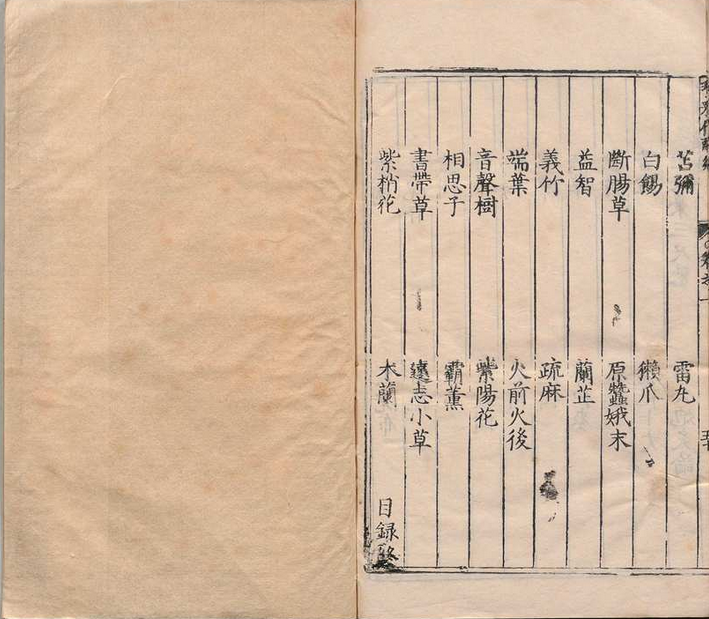 苫彌 雷丸
白餳 獺爪
斷腸草 原蠶娥末
益智 蘭芷
義竹 疏麻
端葉 火前火後
音聲樹 紫陽花
相思子 霸薰
書帶草 遠志小草
紫梢花 木蘭 目錄終